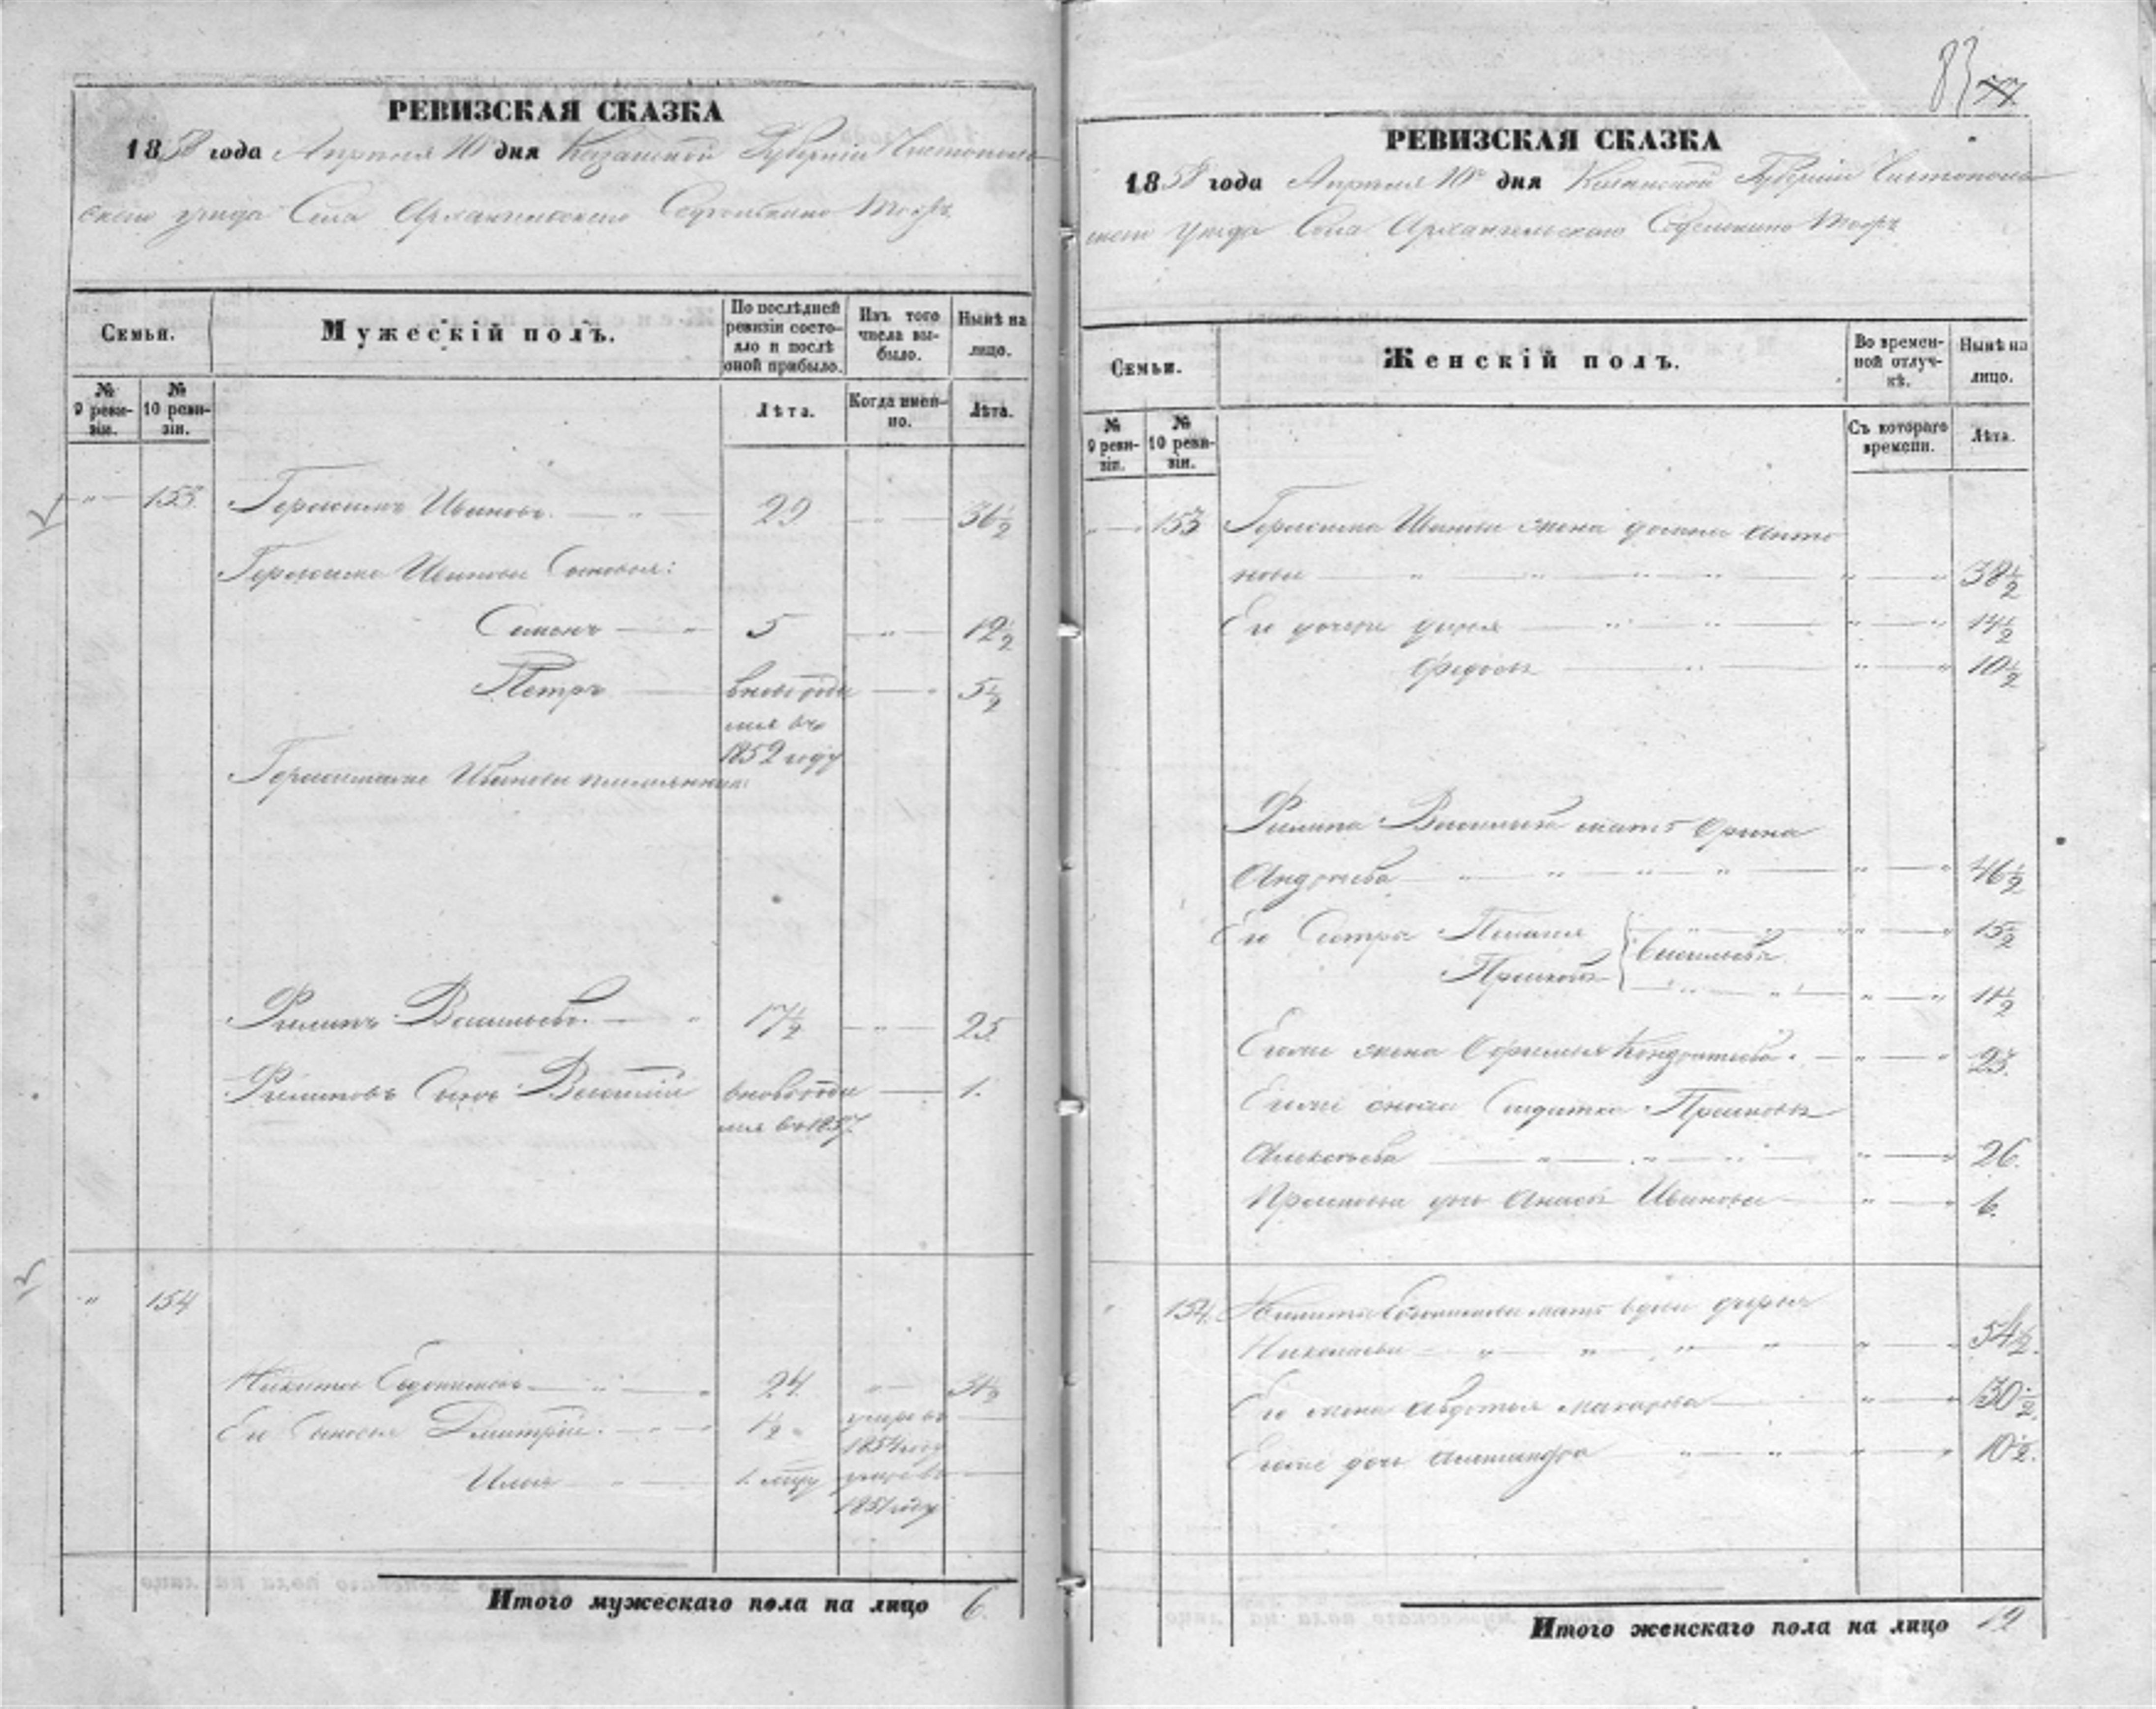 РЕВИЗСКАЯ СКАЗКА
1858 года Апреля 10 дня Казанской Губернии Чистополь-
скаго уезда Села Архангельскаго
Семьи.
Мужескій полъ.
По послѣдней ревизіи состо-
яло и послѣ
оной прибыло.
Изъ того
числа вы-
было.
Нынѣ на
лицо.
№
9 реви-
зіи.
№
10 реви-
зіи.
Лѣта.
Когда имен-
но.
Лѣта.
" 153 Герасимъ Ивановъ. 29 " 36½
Герасима Иванова Сыновья:
Семенъ 5 " 12½
Петръ вновь роди 5½
лся въ
1852 году
Герасима Иванова племянники:
Филипъ Васильевъ. 17½ " 25
Филиповъ Сынъ Василій вновь роди 1.
лся въ 1857.
" 154
Никита Евдокимовъ 24 " 31½
Его Сыновья Дмитрій. 1½ умре въ
1854 году
Илья 1. умре въ
1851 году
Итого мужескаго пола на лицо 6.
83
РЕВИЗСКАЯ СКАЗКА
1858 года Апреля 10 дня Казанской Губерніи Чистополь-
скаго уезда Села Архангельскаго
Семьи.
Женскій полъ.
Во времен-
ной отлуч-
кѣ.
Нынѣ на
лицо.
№
9 реви-
зіи.
№
10 реви-
зіи.
Съ котораго
времени.
Лѣта.
" 153 Герасима Иванова жена Анто
нова 38½
Его дочери 14½
Федосья 10½
Филипа Васильева мать Орина
Андреева 46½
Его Сестра Пелагея 15½
Васильева
Прасковья 11½
Егоже жена Кондратьева. 23.
Егоже сноха Солдатка Прасковья
Алексеева 26.
Прасковьи дочь Иванова 6.
" 154. Никиты Евдокимова мать вдова Дарья
Николаева 54½.
Его жена Авдотья Макарова 30½.
Егоже дочь Александра 10½.
Итого женскаго пола на лицо 12